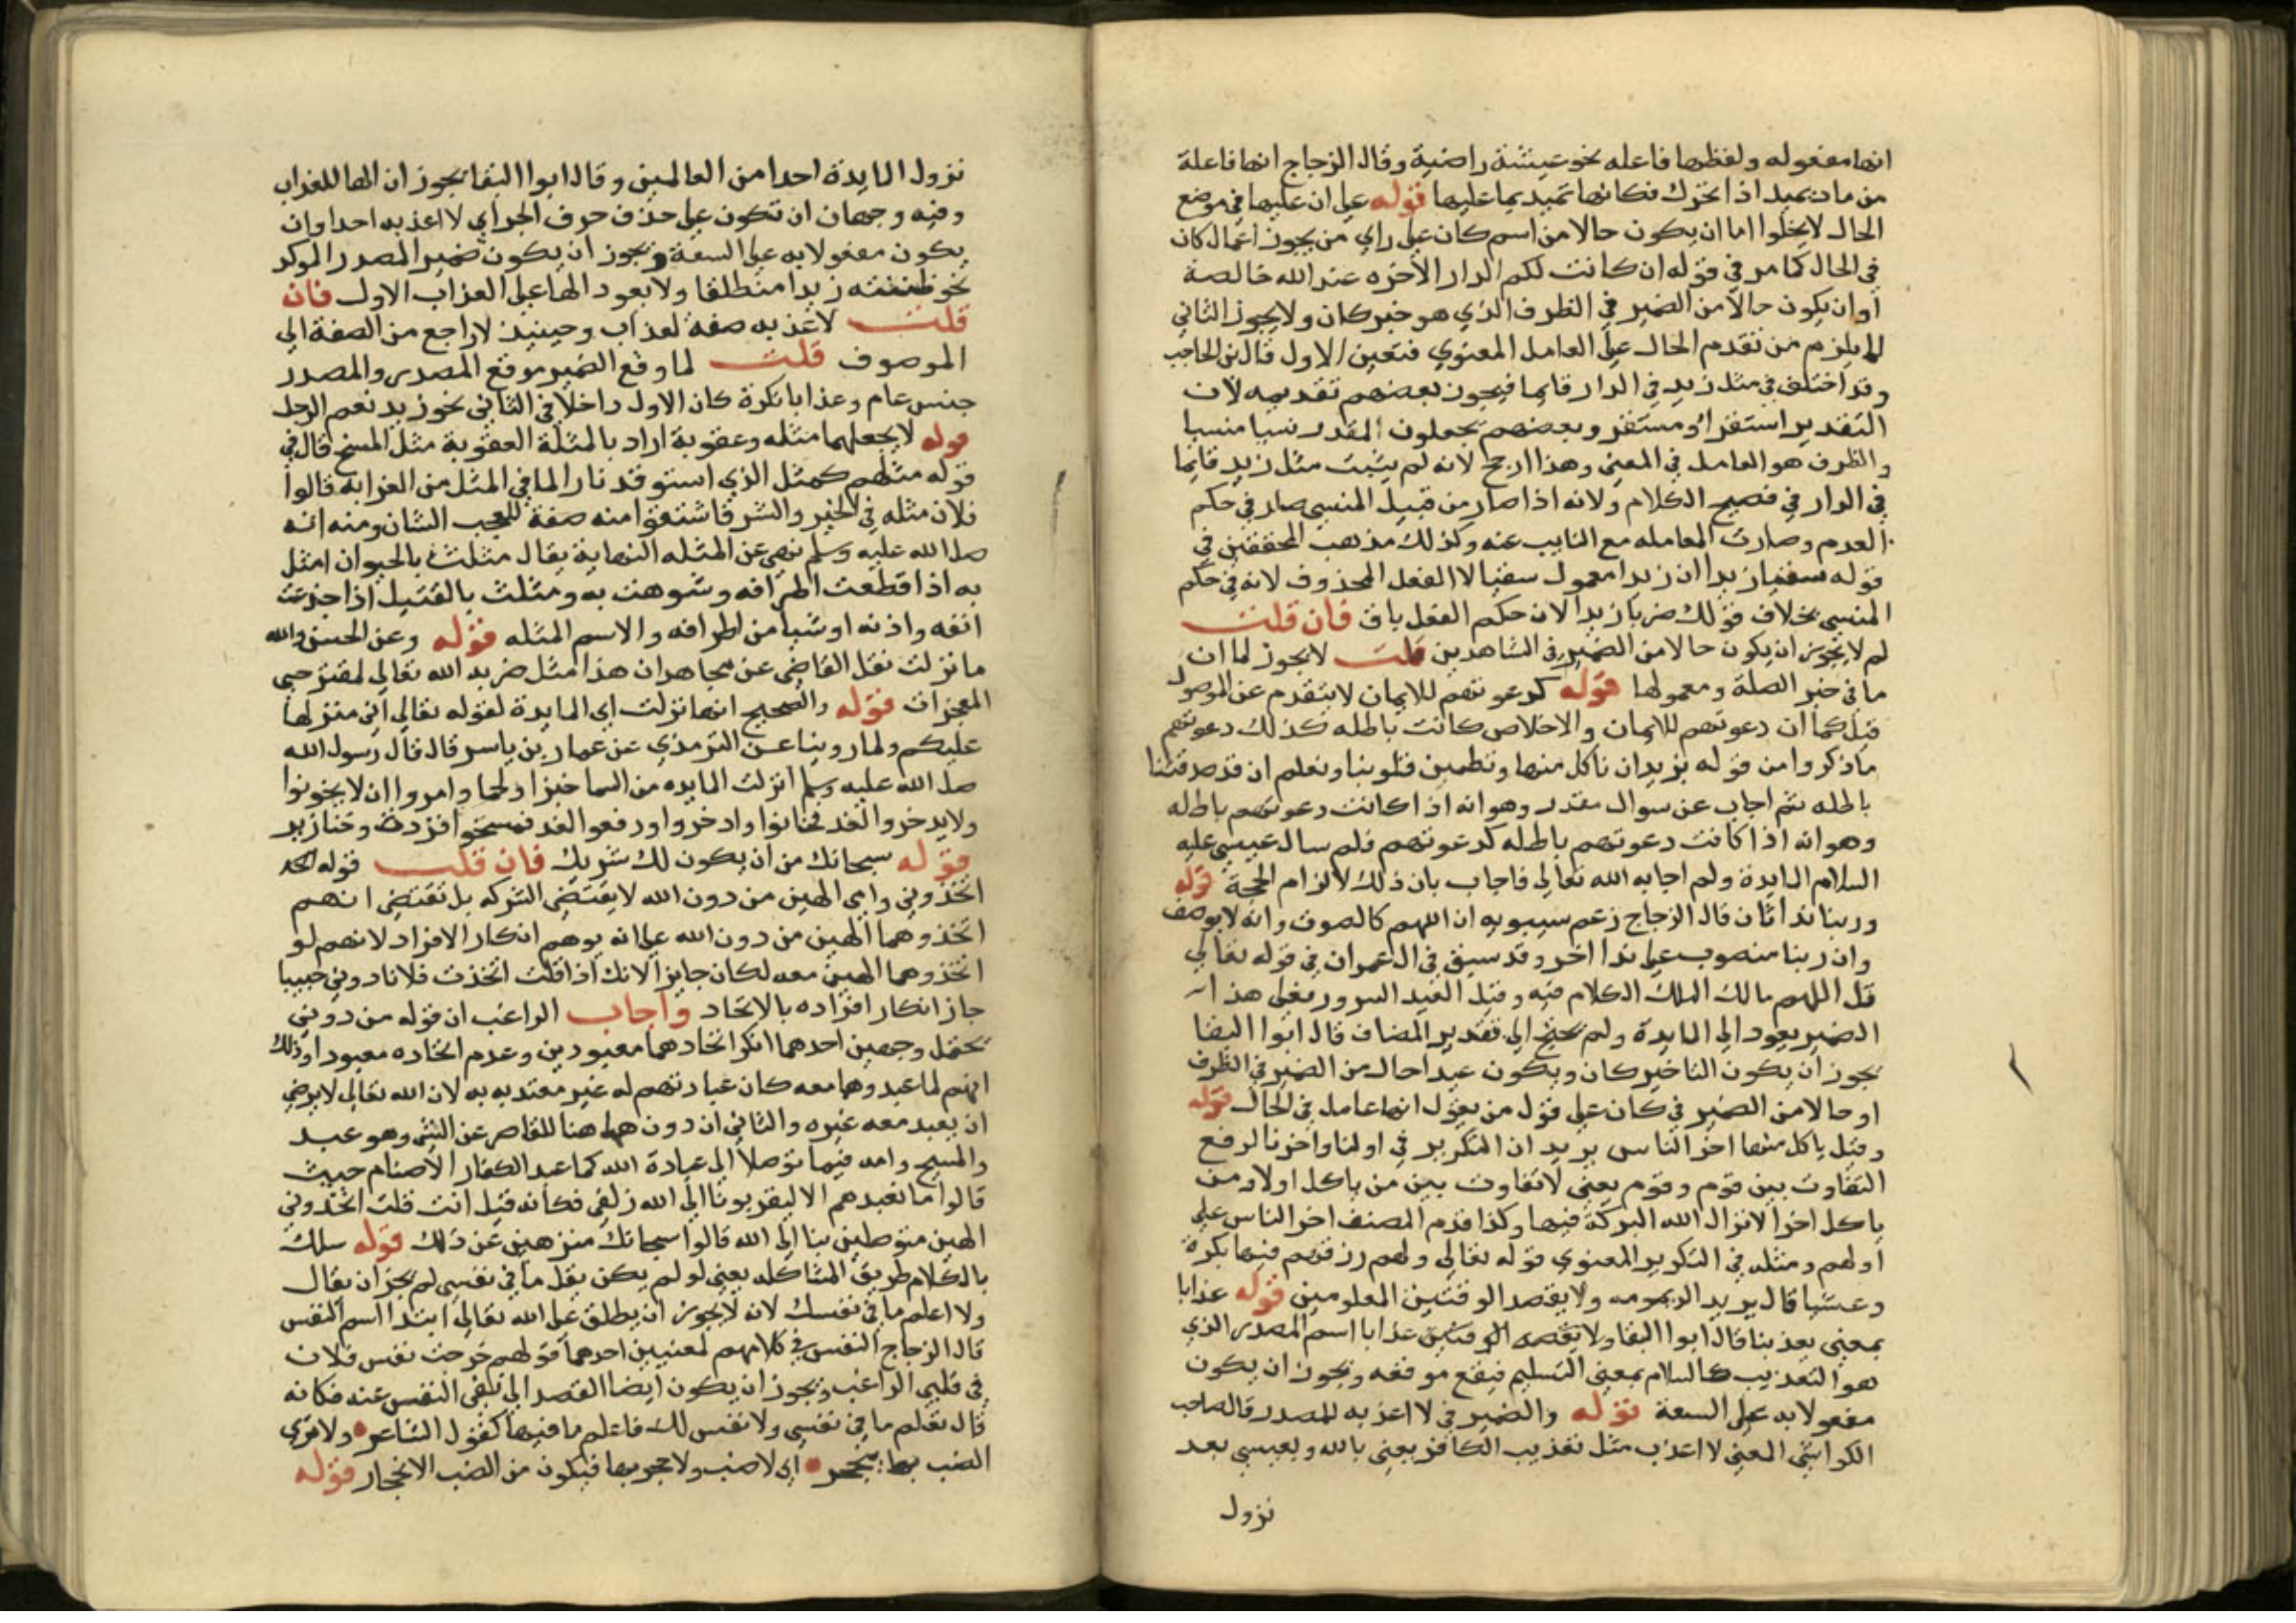 انها مفعوله ولفظها فاعله نحو عيشة راضية وقال الزجاج انها فاعلة
من ماد يميد اذا تحرك فكانها تميد بما عليها قوله على ان عليها في موضع
الحال لا يخلوا اما ان يكون حالا من اسم كان على راي من يجوز اعمال كان
في الحال كما مر في قوله ان كانت لكم الدار الاخره عند الله خالصة
او ان يكون حالا من الضمير في الظرف الذي هو خبر كان ولا يجوز الثاني
لما يلزم من تقدم الحال على العامل المعنوي فتعين الاول قال بن الحاجب
وقد اختلف في مثل زيد في الدار قايما فيجوز بعضهم تقديمه لان
التقدير استقر او مستقر وبعضهم يجعلون المقدر نسيا منسيا
والظرف هو العامل في المعنى وهذا ارجح لانه لم يثبت مثل زيد قايما
في الدار في فصيح الكلام ولانه اذا صار من قبيل المنسي صار في حكم
العدم وصارت المعامله مع النايب عنه وكذلك مذهب المحققين في
قوله سقيا زيدا ان زيدا معمول سقيا لا الفعل المحذوف لانه في حكم
المنسي بخلاف قولك ضربا زيدا لان حكم الفعل باق فان قلت
لم لا يجوز ان يكون حالا من الضمير في الشاهدين قلت لا يجوز لما ان
ما في خبر الصلة ومعمولها قوله كدعوتهم للايمان لا يتقدم عن الموصول
قبل كما ان دعوتهم للايمان والاخلاص كانت باطله كذلك دعوتهم
ما ذكروا من قوله نريد ان ناكل منها وتطمين قلوبنا ونعلم ان قد صدقتنا
باطله ثم اجاب عن سوال مقدر وهو انه اذا كانت دعوتهم باطله
وهو انه اذا كانت دعوتهم باطله كدعوتهم فلم سال عيسى عليه
السلام المايدة ولم اجابه الله تعالى فاجاب بان ذلك لالزام الحجة قوله
وربنا ندا ثان قال الزجاج زعم سيبويه ان اللهم كالصوت وانه لا يوصف
وان ربنا منصوب على ندا اخر وقد سبق في ال عمران في قوله تعالى
قل اللهم مالك الملك الكلام فيه وقيل العيد السرور فعلى هذا
الضمير يعود الى المايدة ولم يحتج الى تقدير المضاف قال ابوا البقا
يجوز ان يكون لنا خبر كان ويكون عيدا حال من الضمير في الظرف
او حالا من الضمير في كان على قول من يقول انها عامل في الحال قوله
وقيل ياكل منها اخر الناس يريد ان التكرير في اولنا واخرنا لرفع
التفاوت بين قوم وقوم يعني لا تفاوت بين من ياكل اولا ومن
ياكل اخرا لانزال الله البركة فيها وكذا قدم المصنف اخر الناس على
اولهم ومثله في التكرير المعنوي قوله تعالى ولهم رزقهم فيها بكرة
وعشيا قال يريد الديمومه ولا يقصد الوقتين المعلومين قوله عذابا
بمعنى تعذيبا قال ابوا البقا ولا يقصد الوقتين عذابا اسم المصدر الذي
هو التعذيب كالسلام بمعنى التسليم فيقع موقعه ويجوز ان يكون
مفعولا به على السعة قوله والضمير في لا اعذبه للمصدر قال صاحب
الكواشي المعنى لا اعذب مثل تعذيب الكافر يعني بالله وبعيسى بعد
نزول
نزول المايدة احدا من العالمين وقال ابوا البقا يجوز ان الها للعذاب
وفيه وجهان ان تكون على حذف حرف الجر اي لا اعذب به احدا وان
يكون مفعولا به على السعة ويجوز ان يكون ضمير المصدر الموكد
نحو ظننته زيدا منطلقا ولا يعود الها على العذاب الاول فان
قلت لا عذبه صفة لعذاب وحينيذ لا راجع من الصفة الى
الموصوف قلت لما وقع الضمير موقع المصدر والمصدر
جنس عام وعذابا نكرة كان الاول داخلا في الثاني نحو زيد نعم الرجل
قوله لا يجعلهما مثله وعقوبة اراد بالمثلة العقوبة مثل المسخ قال في
قوله مثلهم كمثل الذي استوقد نارا لما في المثل من الغرابه قالوا
فلان مثله في الخير والشر فاشتقوا منه صفة للعجب الشان ومنه انه
صلى الله عليه وسلم نهى عن المثله النهاية يقال مثلت بالحيوان امثل
به اذا قطعت اطرافه وشوهت به ومثلت بالقتيل اذا جدعت
انفه واذنه او شيا من اطرافه والاسم المثله قوله وعن الحسن والله
ما نزلت نقل القاضي عن مجاهد ان هذا مثل ضربه الله تعالى لمقترحي
المعجزات قوله والصحيح انها نزلت اي المايدة لقوله تعالى اني منزلها
عليكم ولما روينا عن الترمذي عن عمار بن ياسر قال قال رسول الله
صلى الله عليه وسلم انزلت المايده من السما خبزا ولحما وامروا ان لا يخونوا
ولا يدخروا لغد فخانوا وادخروا ورفعوا لغد فمسخوا قردة وخنازير
قوله سبحانك من ان يكون لك شريك فان قلت قوله
اتخذوني وامى الهين من دون الله لا يقتضي الشركه بل تقتضي انهم
اتخذوهما الهين من دون الله على انه يوهم انكار الافراد لانهم لو
اتخذوهما الهين معه لكان جايزا لانك اذا قلت اتخذت فلانا دوني حبيبا
جاز انكار افراده بالاتحاد واجاب الراغب ان قوله من دوني
يحتمل وجهين احدهما انكر اتخادهما معبودين وعدم اتخاده معبودا وذلك
انهم لما عبدوهما معه كان عبادتهم له غير معتد به به لان الله تعالى لا يرضي
ان يعبد معه غيره والثاني ان دون هاهنا للقاصر عن الشي وهو عبد
والمسيح وامه فيما توصلا الى عبادة الله كما عبد الكفار الاصنام حيث
قالوا ما نعبدهم الا ليقربونا الى الله زلفي فكانه قيل انت قلت اتخذوني
الهين متوصلين بنا الى الله قالوا سبحانك منزهين عن ذلك قوله سلك
بالكلام طريق المشاكله يعني لو لم يكن يقل ما في نفسي لم يجز ان يقال
ولا اعلم ما في نفسك لانه لا يجوز ان يطلق على الله تعالى ابتدا اسم النفس
قال الزجاج النفس في كلامهم لمعنيين احدهما قولهم خرجت نفس فلان
في قلبي الراغب ويجوز ان يكون ايضا القصد الى نفي النفس عنه فكانه
قال تعلم ما في نفسي ولا نفس لك فاعلم ما فيها كقول الشاعر ولا ترى
الضب بها ينجحر اي لا ضب ولا جحر بها فيكون من الضب الانجحار قوله